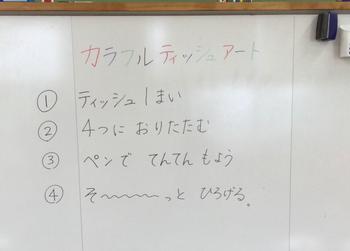 カラフルティッシュアート
① ティッシュ1まい
② 4つに おりたたむ
③ ペンで てんてん もよう
④ そ〜〜〜〜っと ひろげる。